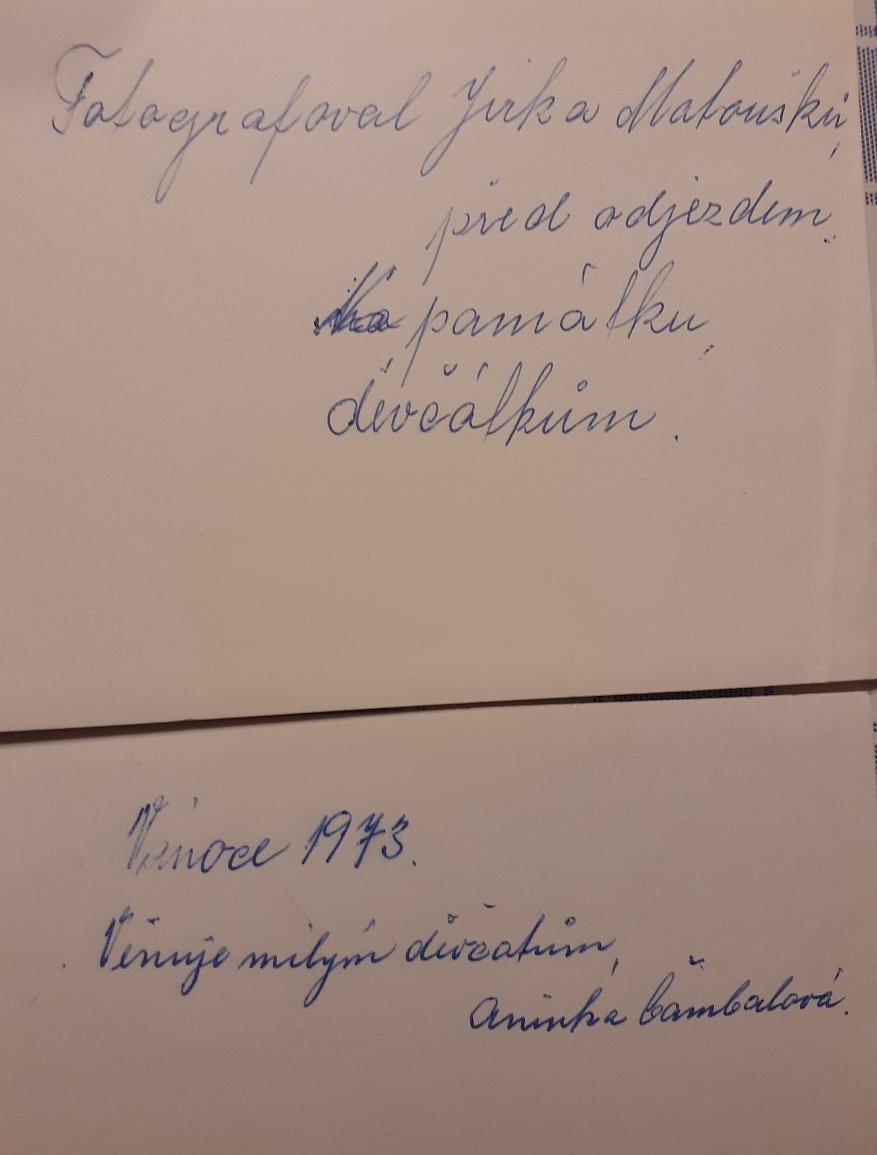 Fotografoval Jirka Matoušků,
před odjezdem.
Na památku,
děvčátkům.
Vánoce 1973.
Věnuje milým děvčatům,
Aninka Čambalová.